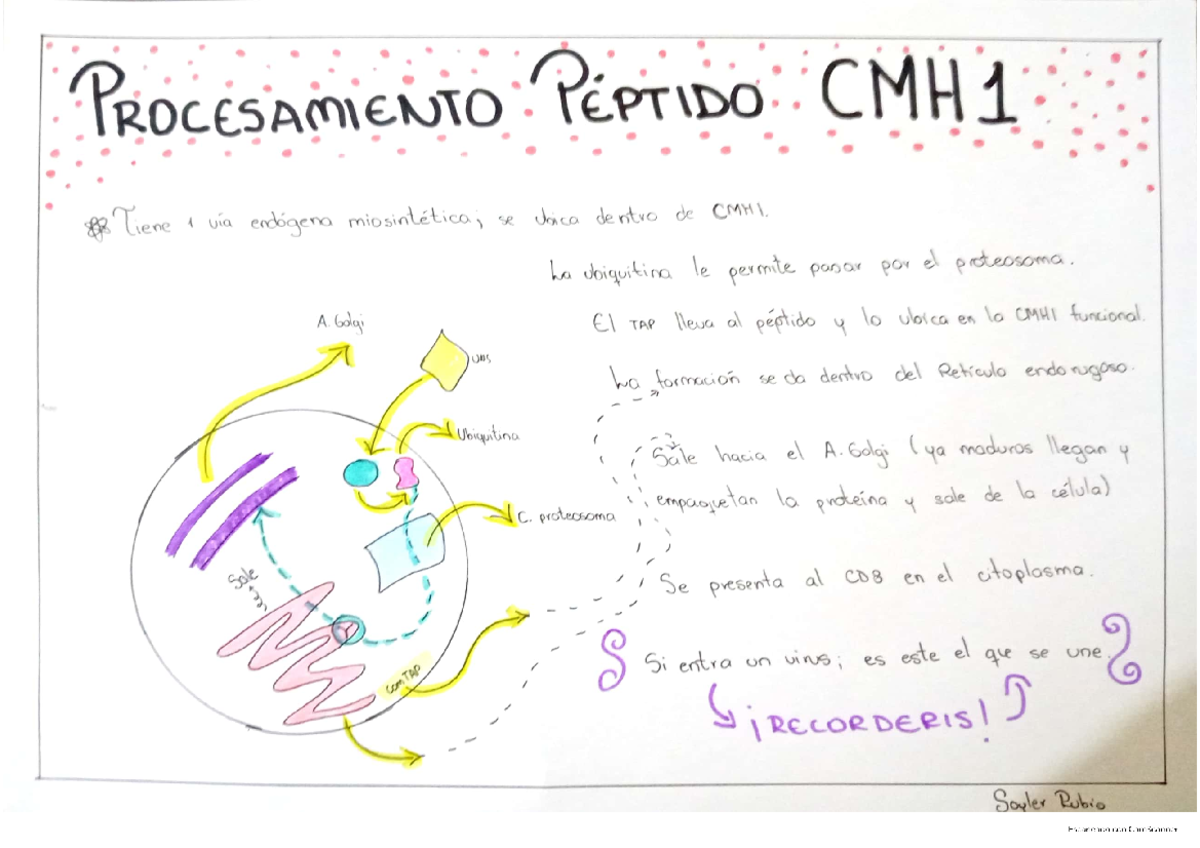 PROCESAMIENTO PÉPTIDO CMH1
Tiene 1 vía endógena miosintética; se ubica dentro de CMH1.
La ubiquitina le permite pasar por el proteosoma.
El TAP lleva al péptido y lo ubica en la CMH1 funcional.
La formación se da dentro del Retículo endo rugoso.
Sale hacia el A. Golgi (ya maduros llegan y
empaquetan la proteína y sale de la célula)
Se presenta al CD8 en el citoplasma.
Si entra un virus; es este el que se une.
¡RECORDERIS!
A. Golgi
Ubiquitina
C. proteosoma
Sale
con TAP
Sayler Rubio